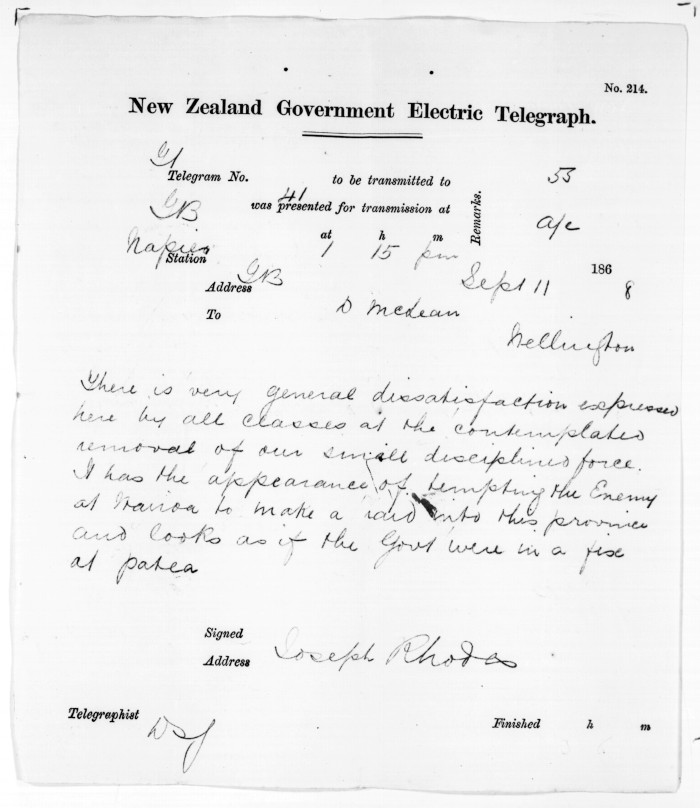 No. 214.
New Zealand Government Electric Telegraph.
Telegram No. to be transmitted to 53
GB 41 was presented for transmission at Remarks. a/c
Napier Station at 1 h 15 m pm
Address GB Sept 11 1868
To D McLean
Wellington
There is very general dissatisfaction expressed
here by all classes at the contemplated
removal of our small disciplined force.
It has the appearance of tempting the Enemy
at Wairoa to make a raid into this province
and looks as if the Govt were in a fix
at patea
Signed
Address Joseph Rhodes
Telegraphist
Finished h m